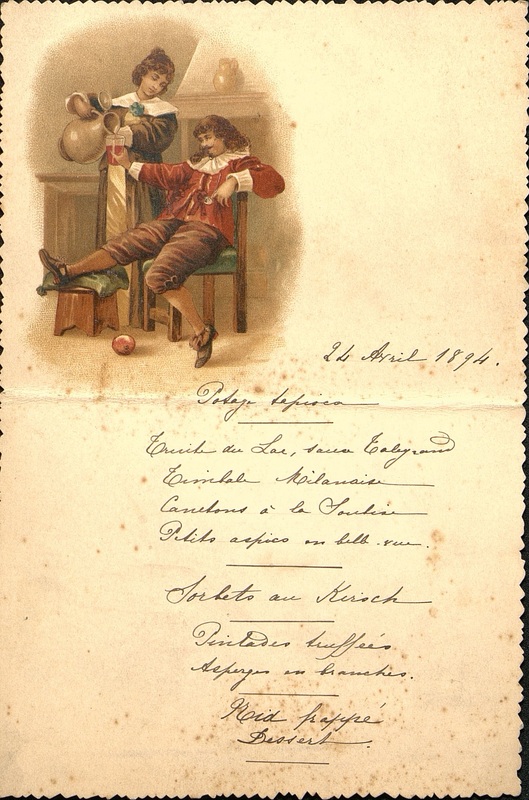 24 Avril 1894.
Potage tapioca
Truite du Lac, sauce Taleyrand
Timbale Milanaise
Canetons à la
Petits aspics en belle-vue.
Sorbets au Kirsch
Pintades truffées
Asperges en branches.
Nid frappé
Dessert.